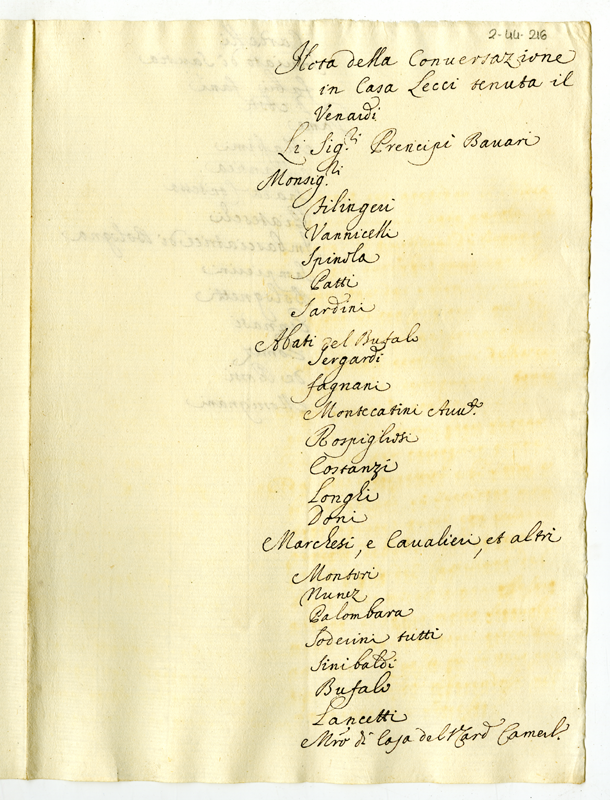 2-44-216
Nota della Conversazione
in Casa Lecci tenuta il
Venardi
Li Sig.ri Prencipi Bavari
Monsig.ri
Filingeri
Vannicelli
Spinola
Patti
Sardini
Abati del Bufalo
Sergardi
fagnani
Montecatini Auu.e
Rospigliosi
Costanzi
Longhi
Doni
Marchesi, e Cavalieri, et altri
Montori
Nunez
Palombara
Soderini tutti
Sinibaldi
Bufalo
Lancetti
Mro di Casa del Card Camerl.